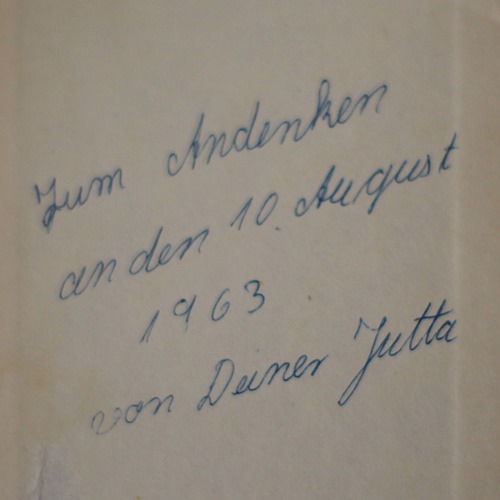 Zum Andenken
an den 10. August
1963
von Deiner Jutta